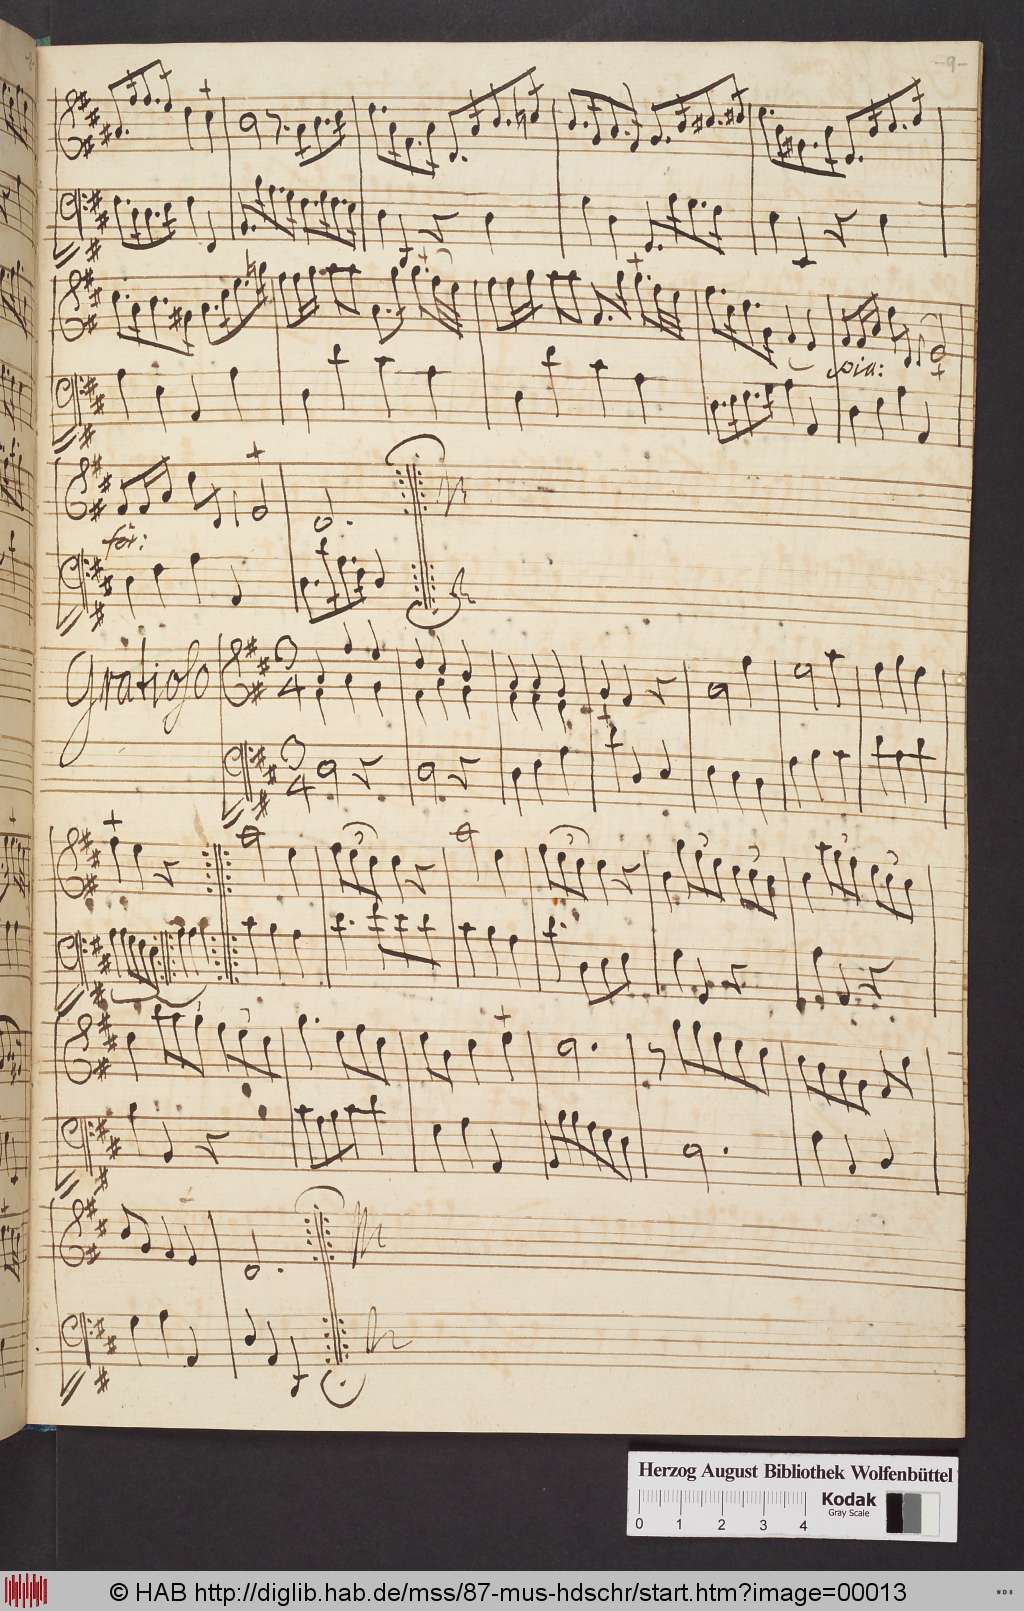 -9-
pia:
for:
Gratioso
3
4
3
4
Herzog August Bibliothek Wolfenbüttel
0 1 2 3 4
Kodak
Gray Scale
© HAB http://diglib.hab.de/mss/87-mus-hdschr/start.htm?image=00013